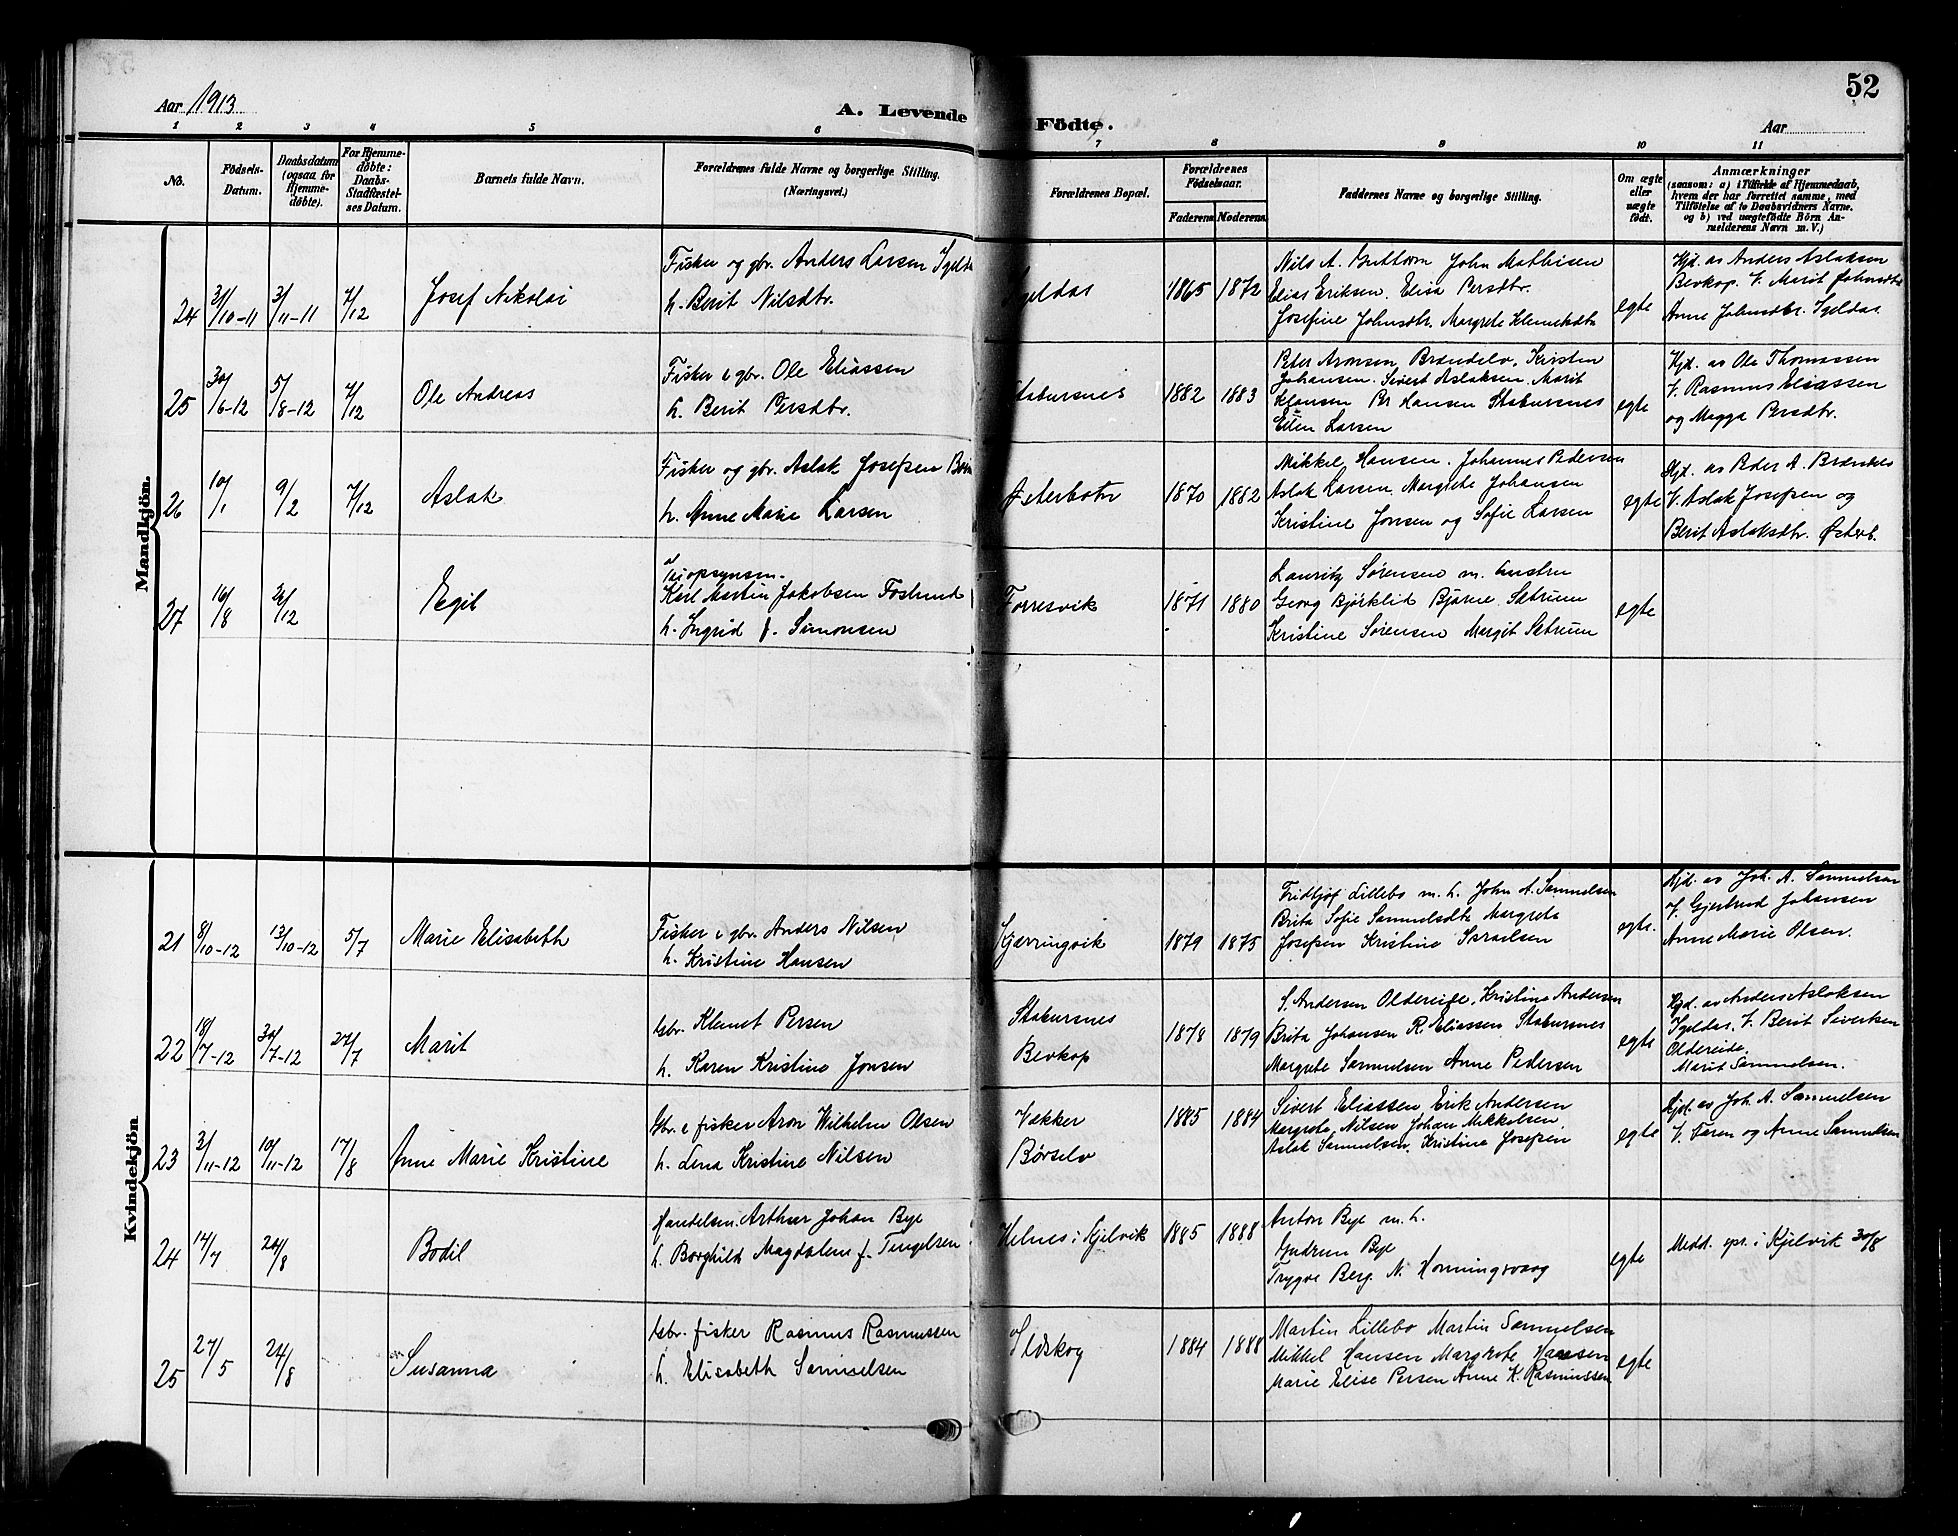 52
Aar 1913
A. Levende Födte.
Aar
1 2 3 4 5 6 7 8 9 10 11
No.
Födsels-Datum.
Daabsdatum (ogsaa for Hjemmedöbte).
For Hjemmedöbte: Daabs-Stadfæstelses Datum.
Barnets fulde Navn.
Forældrenes fulde Navne og borgerlige Stilling. (Næringsvei.)
Forældrenes Bopæl.
Forældrenes Födselsaar.
Faderens Moderens
Faddernes Navne og borgerlige Stilling.
Om ægte eller uægte födt.
Anmærkninger
(saasom: a) i Tilfælde af Hjemmedaab,
hvem der har forrettet samme, med
Tilföielse af to Daabsvidners Navne.
og b) ved uægtefödte Börn Anmelderens Navn m. V.)
Mandkjön.
24 31/10-11 3/11-11 7/12 Josef Nikolai
Fisker og gbr. Anders Larsen Igeldas
h. Berit Nilsdtr.
Igeldas 1865 1872
Nils A. Guttorm John Mathisen
Elias Eriksen. Elisa Persdtr.
Josefine Johnsdtr. Margrete Klemetsdtr
egte
Hjd. av Anders Aslaksen
Bevkop. V. Marit Johnsdtr
Anne Johnsdtr. Igeldas.
25 30/6-12 5/8-12 7/12 Ole Andreas
Fisker & gbr. Ole Eliassen
h. Berit Persdtr.
Stabursnes 1882 1883
Peter Aronsen, Brændelv, Kristen
Johansen. Sivert Aslaksen. Marit
Klausen Per Hansen Stabursnes
Ellen Larsen
egte
Hjd. av Ole Thomassen
V. Rasmus Eliassen
og Magga Persdtr.
26 10/1 9/2 7/12 Aslak
Fisker og gbr. Aslak Josefsen
h. Anne Marie Larsen
Østerbotn 1870 1882
Mikkel Hansen. Johannes Pedersen
Aslak Larsen. Margrete Johansen
Kristine Jonsen og Sofie Larsen
egte
Hjd. av Peder A.
V. Aslak Josefsen og
Berit Aslaksdtr. Østerb.
27 16/8 26/12 Egil
Karl Martin Jakobsen Foslund
h. Ingrid f. Simonsen
Torresvik 1871 1880
Lauritz Sørensen m. hustru
Georg Bjørklid Bjarne Sætrum
Kristine Sørensen Margit Sætrum
egte
Kvindekjön
21 8/10-12 13/10-12 5/7 Marie Elisabeth
Fisker & gbr. Anders Nilsen
h. Kristine Hansen
Kjærringvik 1879 1875
Fridtjof Lillebo m. h. John A. Samuelsen
Brita Sofie Samuelsdtr Margrete
Josefsen Kristine Israelsen
egte.
Hjd. av Joh. A. Samuelsen
V. Gjertrud Johansen
Anne Marie Olsen.
22 18/7-12 30/7-12 27/7 Marit
Gbr. Klemet Persen
h. Karen Kristine Jonsen
Stabursnes
Bevkop 1878 1879
S. Andersen Oldereide, Kristine Andersen
Brita Johansen R. Eliassen Stabursnes
Margrete Samuelsen Anne Pedersen
egte
Hjd. av Anders Aslaksen
Igeldas, V. Berit Sivertsen
Oldereide.
Marit Samuelsen.
23 3/11-12 10/11-12 17/8 Anne Marie Kristine
Gbr. & fisker Aron Wilhelm Olsen
h. Lena Kristine Nilsen
Vækker
Børselv 1885 1884
Sivert Eliassen, Erik Andersen
Margrete Nilsen Johan Mikkelsen,
Aslak Samuelsen, Kristine Josefsen
egte
Hjd. av Joh. A. Samuelsen
V. Faren og Anne Samuelsen
24 14/7 24/8 Bodil
Handelsm. Arthur Johan Bye
h. Borghild Magdalene f. Tingelsen
Helnes i Kjelvik 1885 1888
Anton Bye m. h.
Gudrun Bye
Trygve Berg N. Honningsvaag
egte
Medd. spr. i Kjelvik 30/8
25 27/5 24/8 Susanna
Gbr. fisker Rasmus Rasmussen
h. Elisabeth Samuelsen
Ildskog 1884 1888
Martin Lillebo Martin Samuelsen
Mikkel Hansen Margrete Hansen
Marie Elise Persen Anne K. Rasmussen
egte